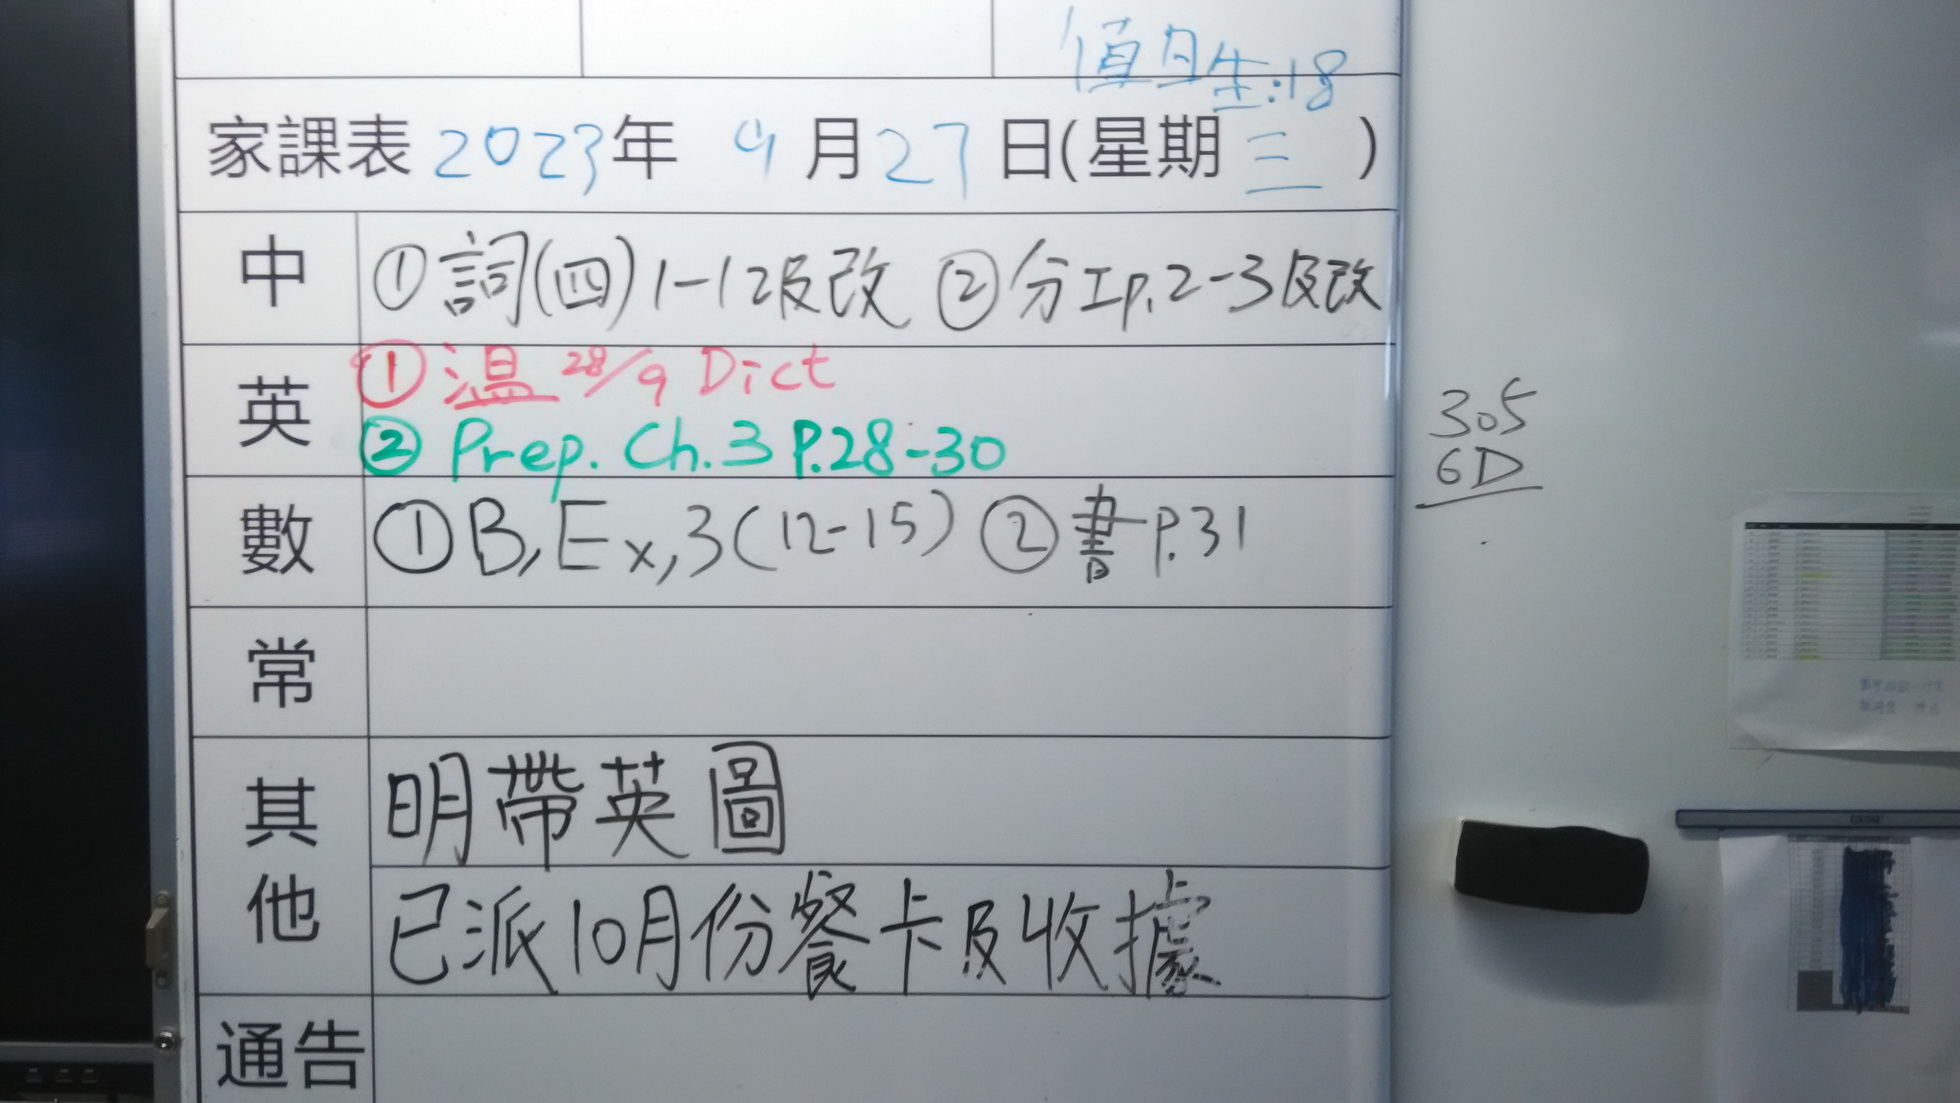 值日生:18
家課表 2023年 9月27日(星期三)
中 ①詞(四)1-12及改 ②分工p.2-3及改
英 ①温 28/9 Dict
②Prep. Ch.3 P.28-30
數 ①B,Ex,3(12-15) ②書p.31
常
其他 明帶英圖
已派10月份餐卡及收據
通告
305
6D